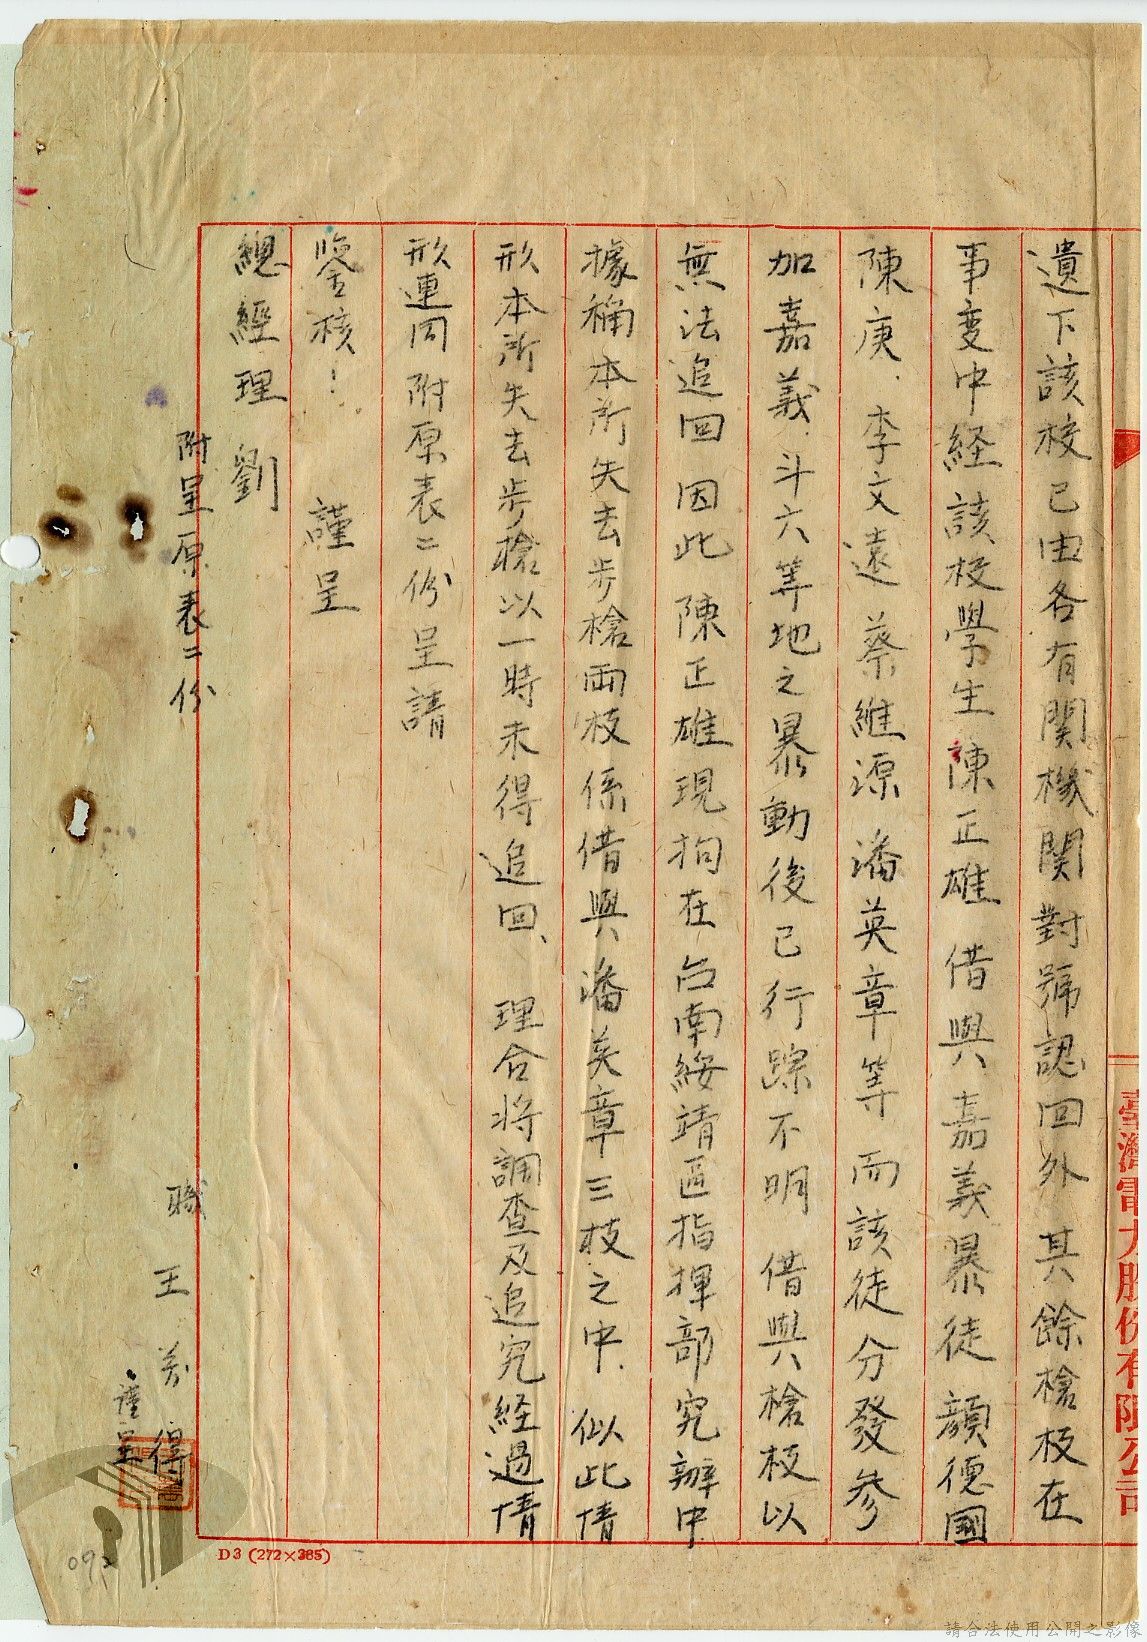 遺下該校已由各有関機関對號認回外其餘槍枝在
事变中経該校學生陳正雄借與嘉義暴徒顔德國
陳庚．李文遠蔡維源潘英章等而該徒分發參
加嘉義．斗六等地之暴動後已行踪不明借與槍枝以
無法追回因此陳正雄現拘在台南綏靖區指揮部究辦中
據稱本所失去步槍両枝係借與潘英章三枝之中．似此情
形本所失去步槍以一時未得追回、理合将調查及追究経過情
形連同附原表二份呈請
鑒核！謹呈
總經理劉
附呈原表二份
職王芳得
謹呈
臺灣電力股份有限公司
D3 (272×385)
092
請合法使用公開之影像